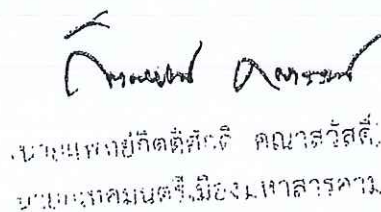 นายแพทย์กิตติศักดิ์ คณาสวัสดิ์
นายกเทศมนตรีเมืองมหาสารคาม